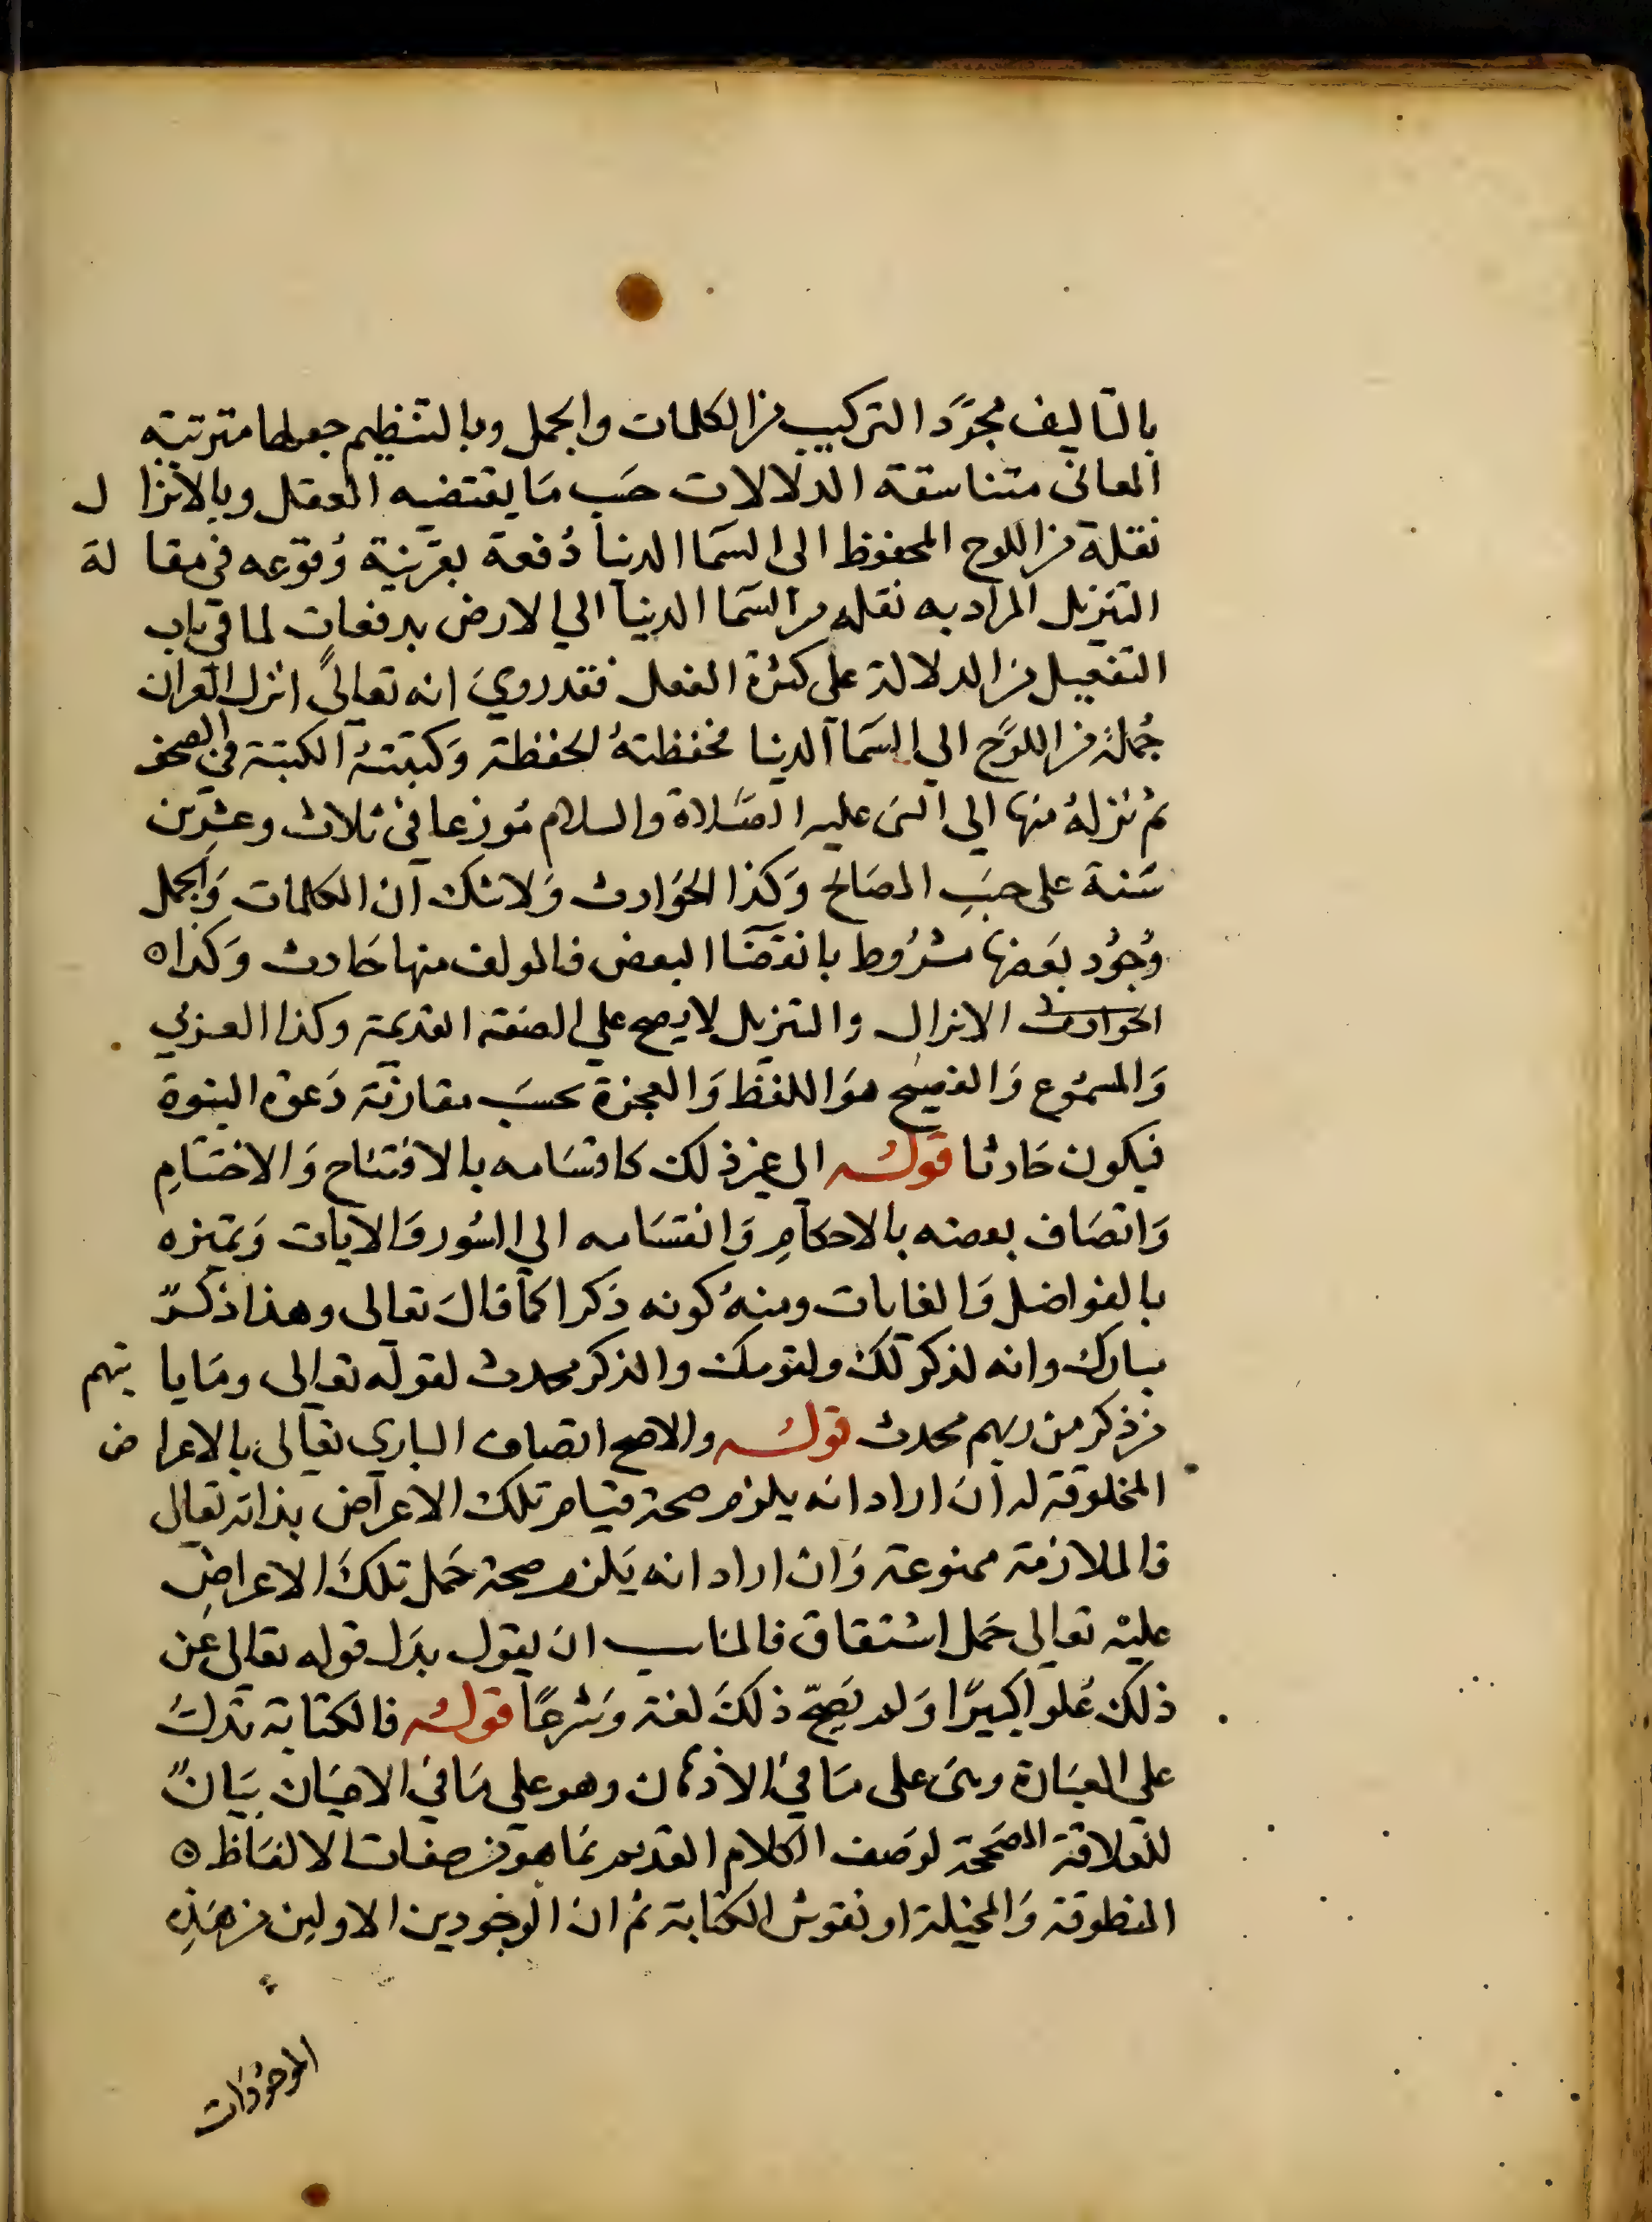 بالتاليف مجرد التركيب من الكلمات والجمل وبالتنظيم جعلها مترتبة
المعانى متناسقة الدلالات حسب ما يقتضيه العقل وبالانزا ل
نقلة من اللوح المحفوظ الى السما الدنيا دُفعة بقرينة وُقوعه في مقا لة
التنزيل المراد به نقله من السما الدنيا الي الارض بدفعات لما في باب
التفعيل من الدلالة على كثرة الفعل فقد روي انه تعالى انزل القران
جُملة من اللوح الي السما الدنيا فحفظتهُ الحفظة وكتبتهُ الكتبة في الصحف
ثم نزلهُ منها الي النبى عليه الصلاة والسلام مُوزعا في ثلاث وعشرين
سَنة على حسَبِ المصَالح وَكذا الحَوادث وَلا شك ان الكلمات وَالجمل
وُجُود بعَضها مشرُوط بانقضَا البعض فالمولف منها حَادث وَكذاه
الحوادث الانزال والتنزيل لا يصح علي الصفة القديمة وكذا العزبي
وَالمسمُوع وَالفصيح هوَ اللفظ وَالمعجزة بحسَب مقارنة دَعوة النبوة
فيكون حَادثا قوله الى غير ذلك كاتسَامه بالافتتاح وَالاختتامِ
وَاتصَاف بعضه بالاحكامِ وَانقسَامه الي السُور وَالايات وَتميزه
بالفواضل وَالغايات ومنهُ كونه ذكرا كما قالَ تعالى وهذا ذكرٌ
مبارك وانه لذكر لك ولقومك والذكر محدث لقوله تعالى ومَا يا تيهم
من ذكر من ربهم محدث قوله والاصح اتصاف الباري تعالى بالاعرا ض
المخلوقة له ان اراد انه يلزم صحة قيام تلك الاعراض بذاته تعالى
فالملازمة ممنوعة وَان اراد انه يَلزم صحة حَمل تلكَ الاعراضِ
عليه تعالى حَمل اشتقاق فالمناسب ان يقول بدَل قوله تعالى عن
ذلك عُلوا كبيرًا وَلم يَصحّ ذلكَ لغة وَشرعًا قوله فالكتابة تدلُ
علي العبَارة وهىَ على مَا في الاذهان وهو على مَا في الاعيَان بيَانٌ
للعلاقة المصَححة لوَصف الكلام القديم بمَا هو من صفات الالفاظ ه
المنطوقة وَالمخيلة او نقوش الكتابة ثم ان الوجودين الاولين من هَذهِ
الموجُودَات